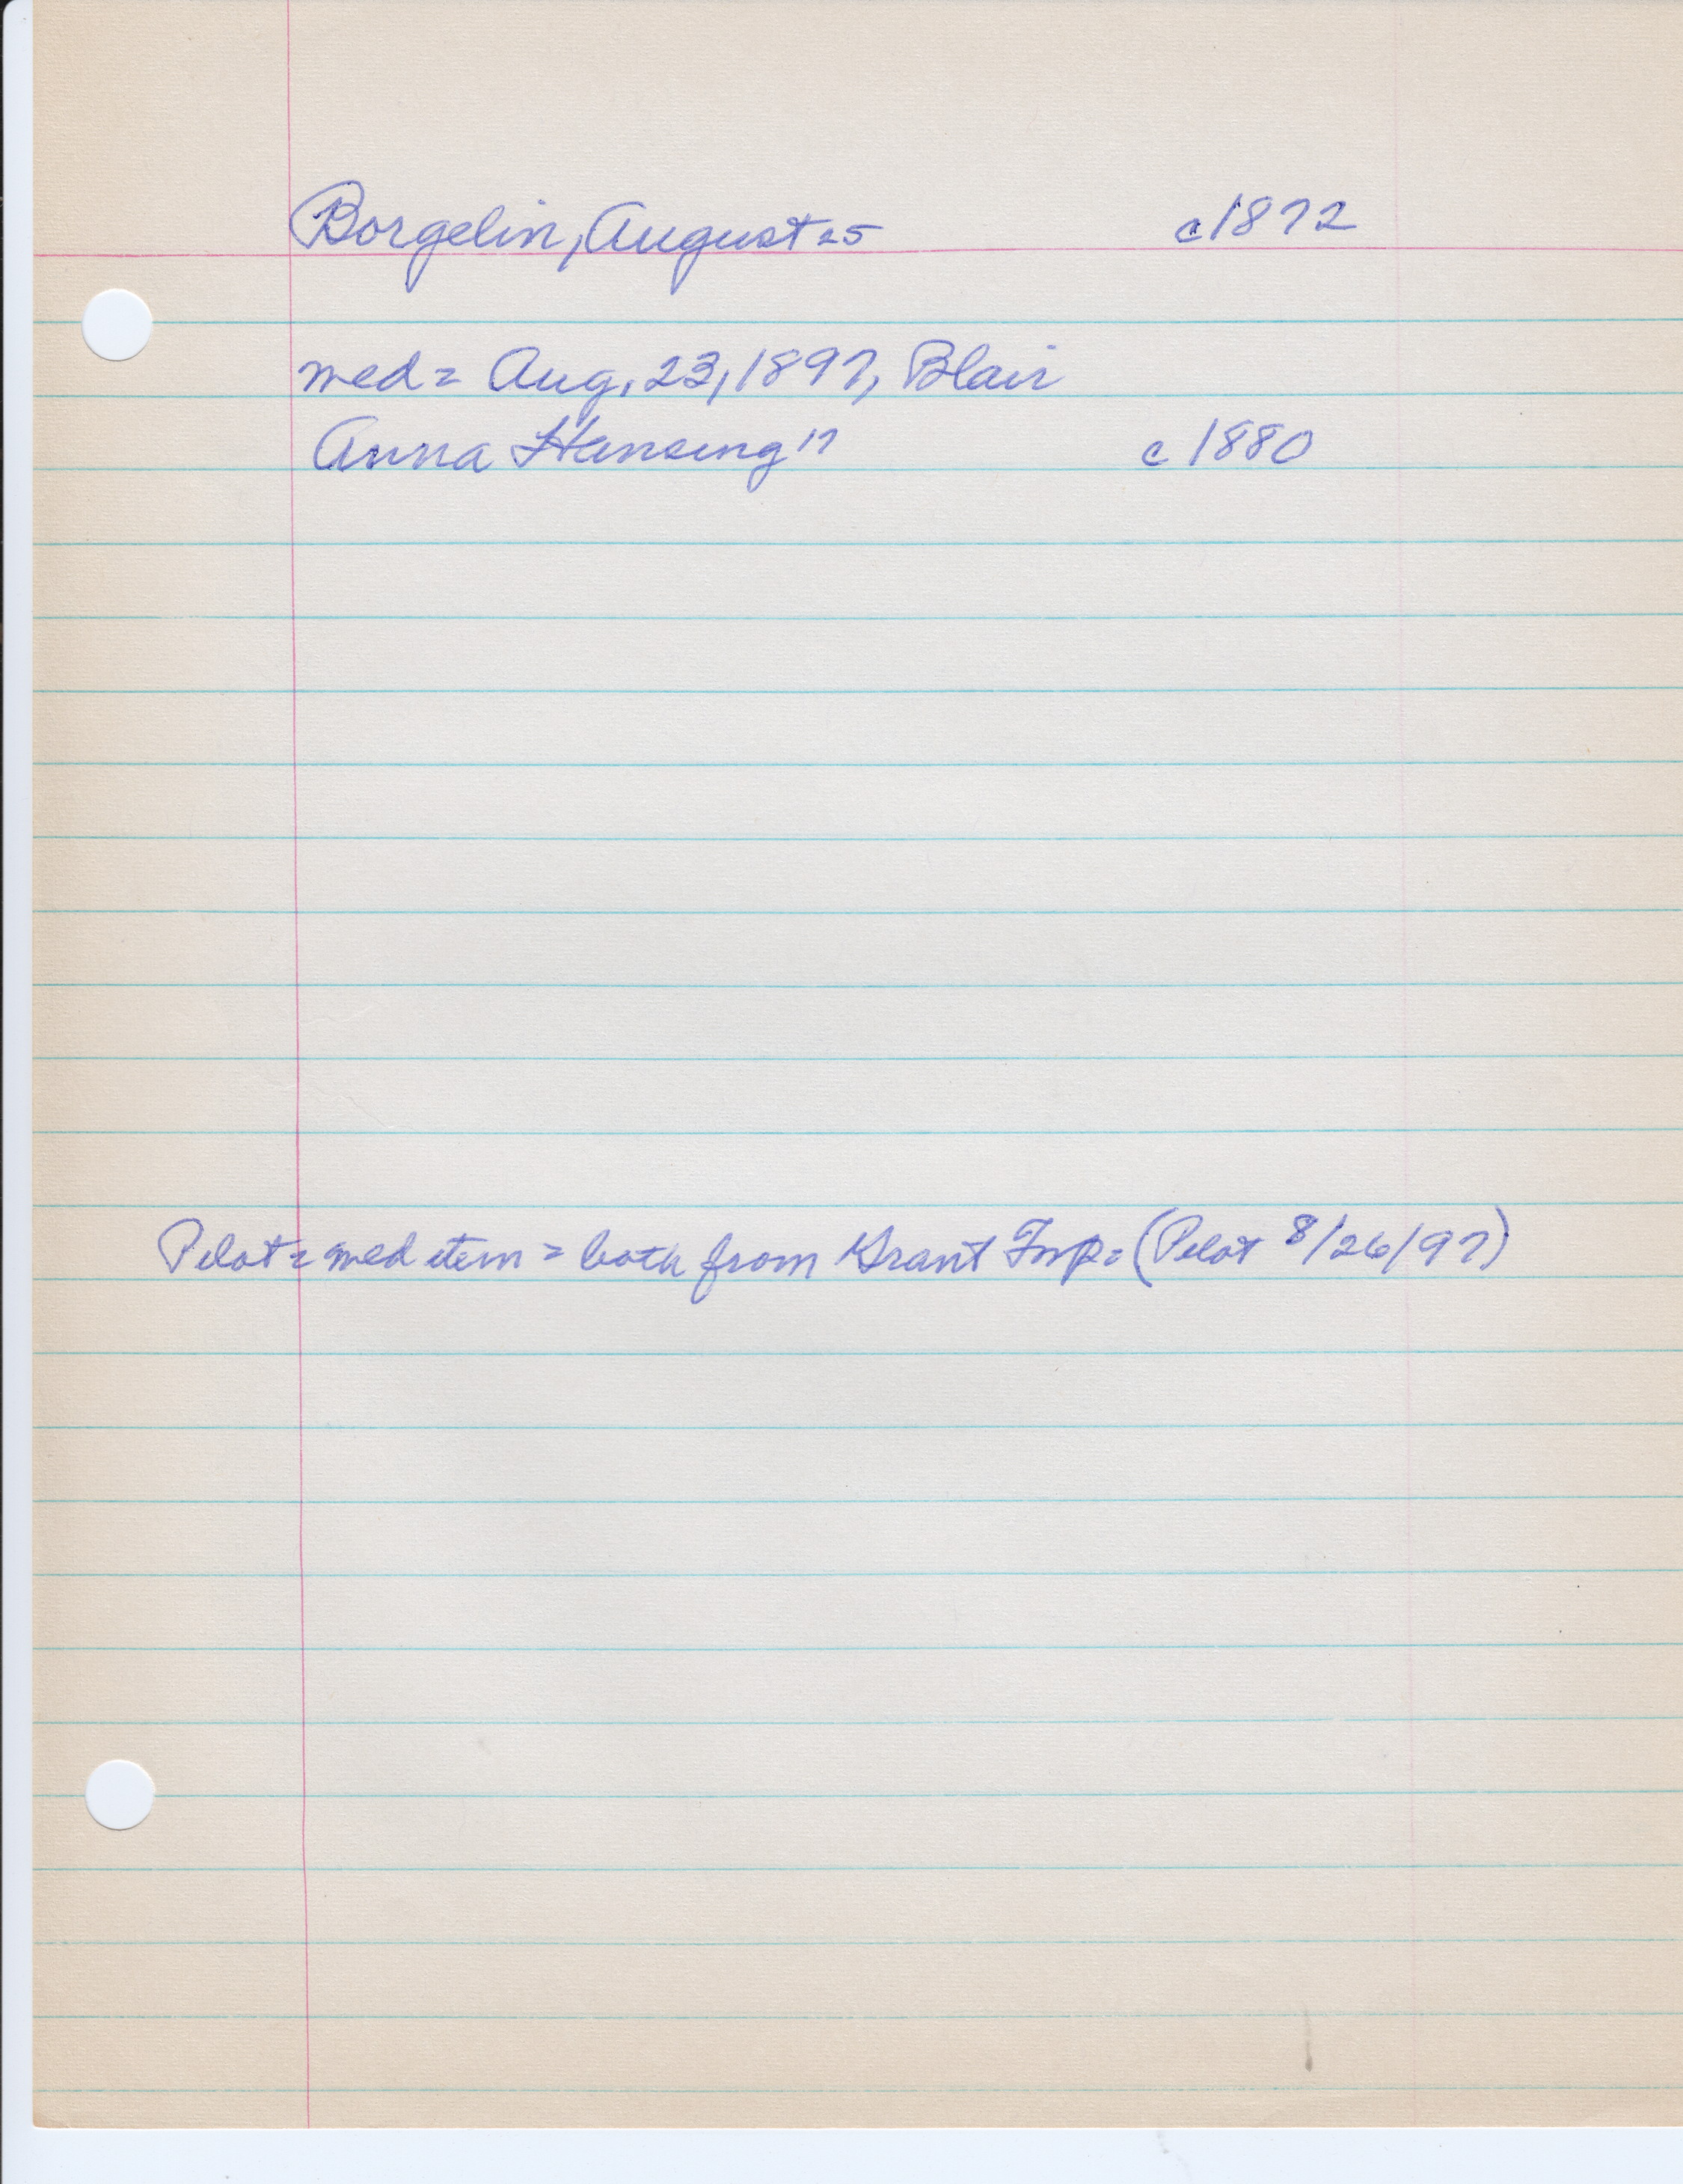 Borgelin, August 25 c1872
med = Aug. 23, 1897, Blair
Anna Hansing 17 c1880
Pilot = med item = both from Grant Twp = (Pilot 8/26/97)